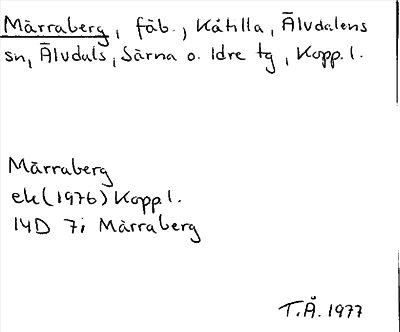 Mårraberg, fäb., Kåtilla, Älvdalens
sn, Älvdals, Särna o. Idre tg, Kopp. l.
Mårraberg
ek (1976) Kopp l.
14D 7i Mårraberg
T.Å. 1977